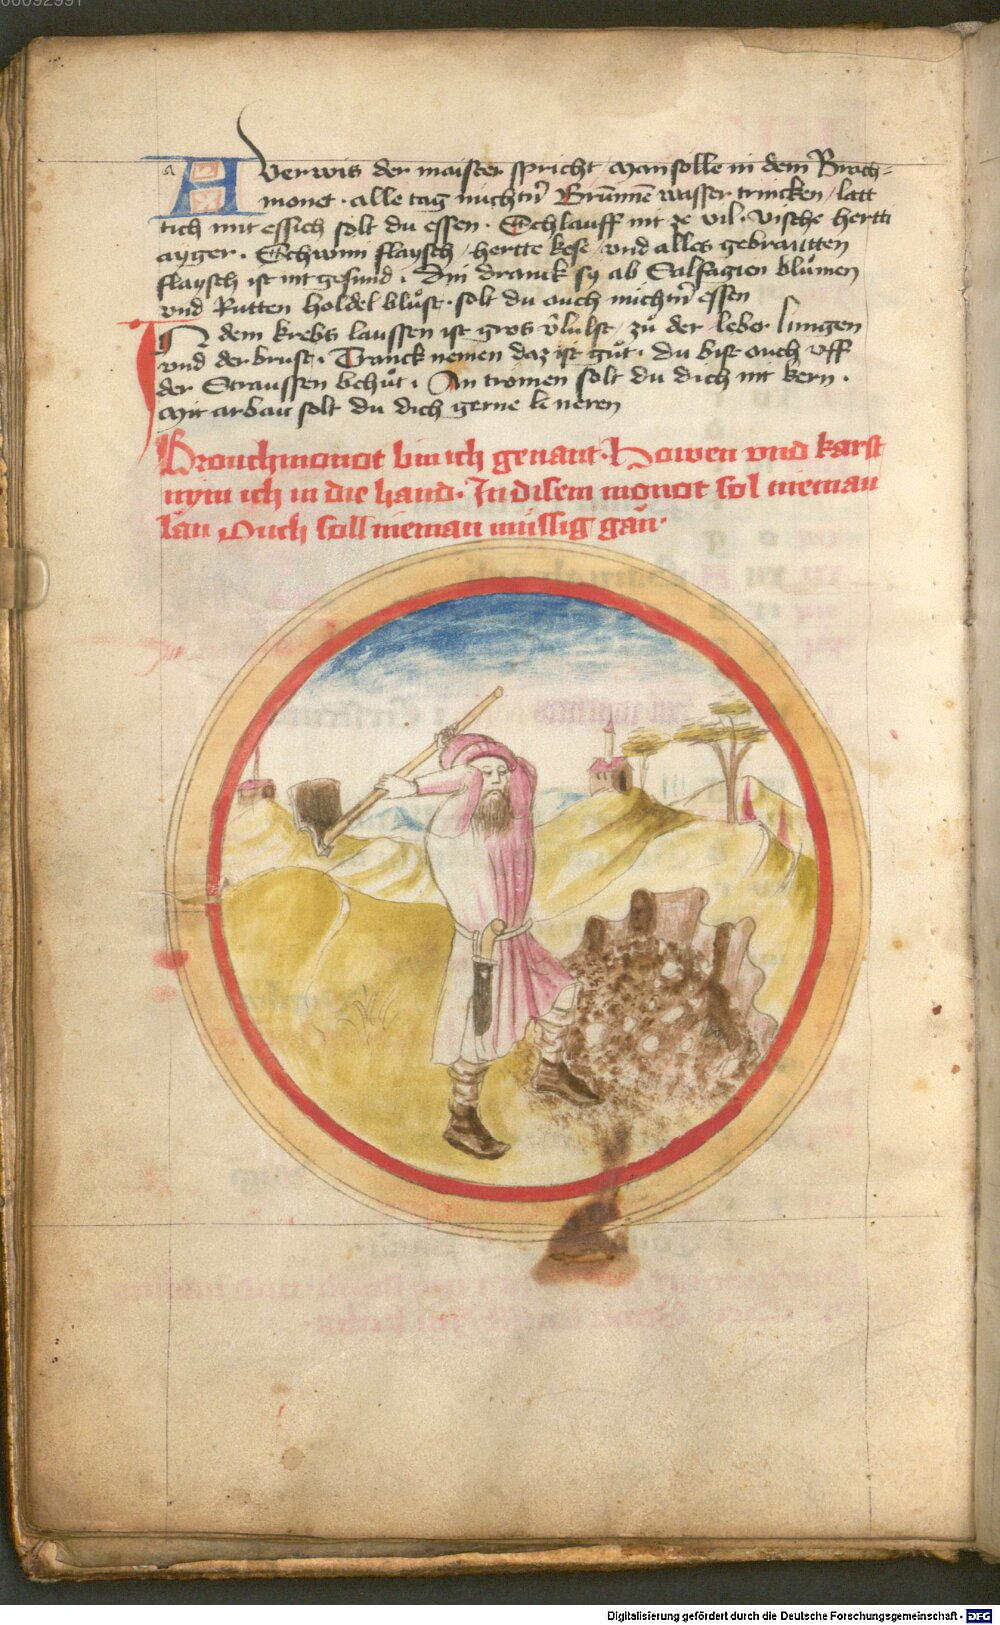 00092991
a
Averwis der maister spricht / Man solle in dem Brach-
monet · alle tag nüchtn̄ Brūnnē wasser trincken / latt
tich mit essich solt du essen · Schlauff nit ze vil · Vische hertti
ayger · Schwini flaysch / hertte kese / vnd alles gebrautten
flaysch ist nit gesund · Din dranck sy ab Salfagien blůmen
vnd Rutten holdel blůst · solt du ouch nüchtn̄ essen
In dem krebs laussen ist gros zů der leber lungen
vnd der brust · Tranck nemen daz ist gůt · du bist ouch vff
der Straussen behůt · An tromen solt du dich nit kern ·
Mit arbait solt du dich gerne neren
Brouchmonot bin ich genant · Howen vnd karst
nym ich in die hand · In disem monot sol nieman
lān Ouch soll nieman müssig gān ·
Digitalisierung gefördert durch die Deutsche Forschungsgemeinschaft - DFG